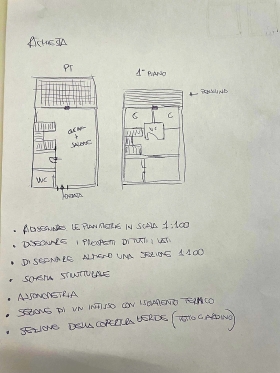 RICHIESTA
PT
1° PIANO
PENSILINA
C
C
CUCINA
+
SALONE
WC
WC
ENTRATA
• RIDISEGNARE LE PIANTINE IN SCALA 1:100
• DISEGNARE I PROSPETTI DI TUTTI I LATI
• DISEGNARE ALMENO UNA SEZIONE 1:100
• SCHEMA STRUTTURALE
• ASSONOMETRIA
• SEZIONE DI UN INFISSO CON ISOLAMENTO TERMICO
• SEZIONE DELLA COPERTURA VERDE (TETTO GIARDINO)